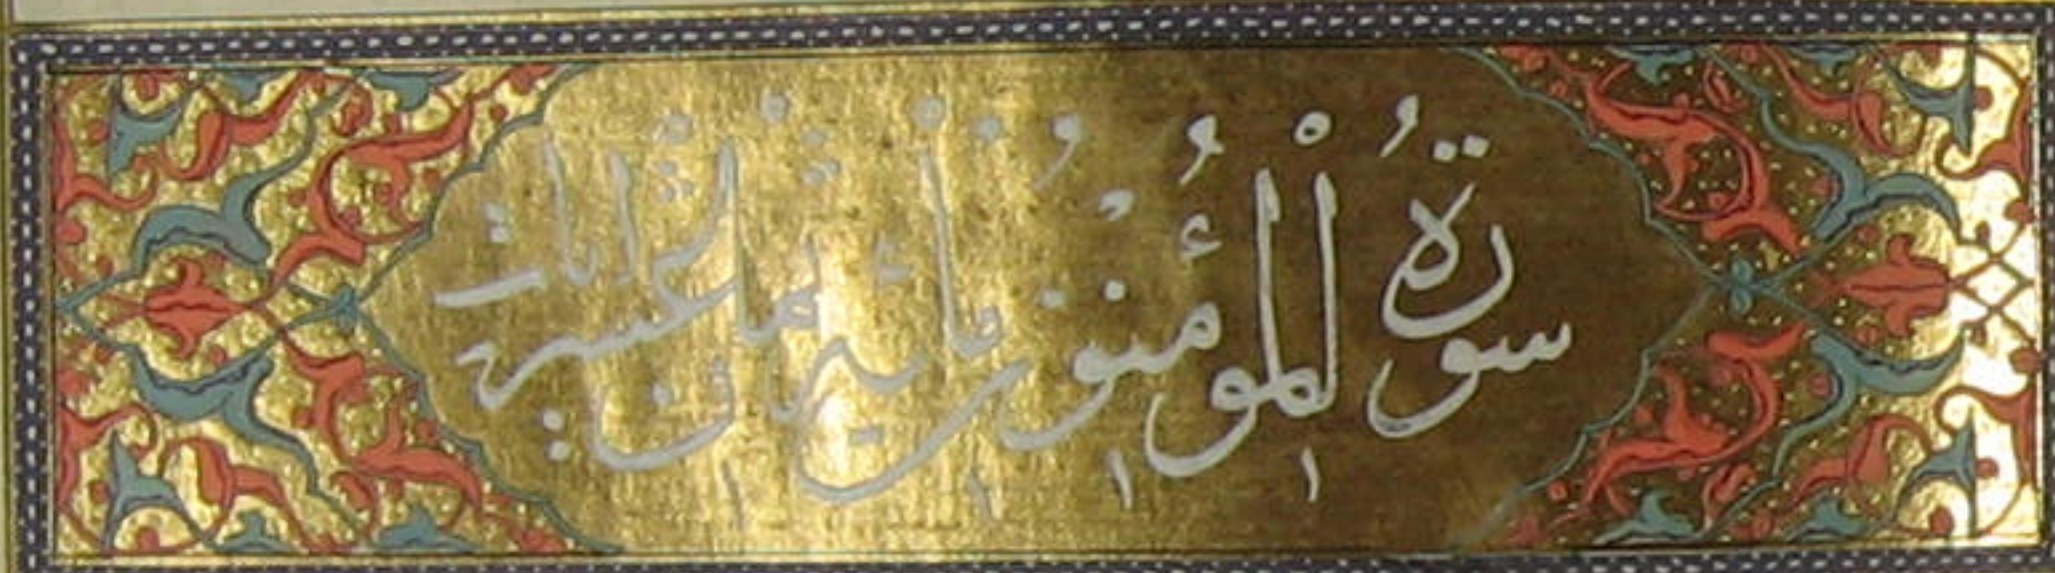 سورة المؤمنون مائة وثمان عشر ايات